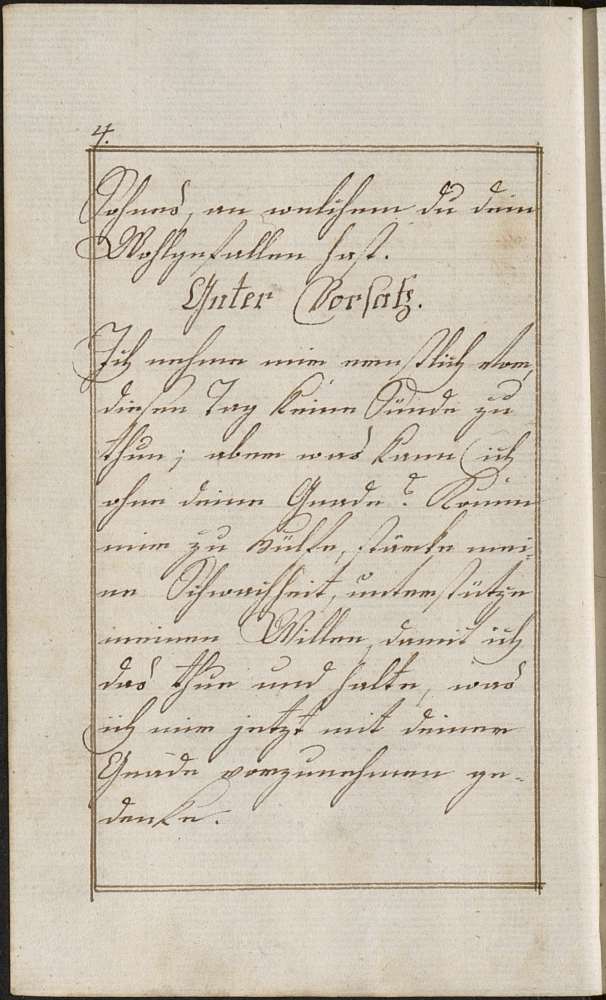 4.
Sohnes, an welchem du dein
Wohlgefallen hast.
Guter Vorsatz.
Ich nehme mir ernstlich vor,
diesen Tag keine Sünde zu
thun; aber was kann ich
ohne deine Gnade? Komm
mir zu Hülfe, stärke mei-
ne Schwachheit, unterstütze
meinen Willen, damit ich
das thue und halte, was
ich mir jetzt mit deiner
Gnade vorzunehmen ge-
denke.